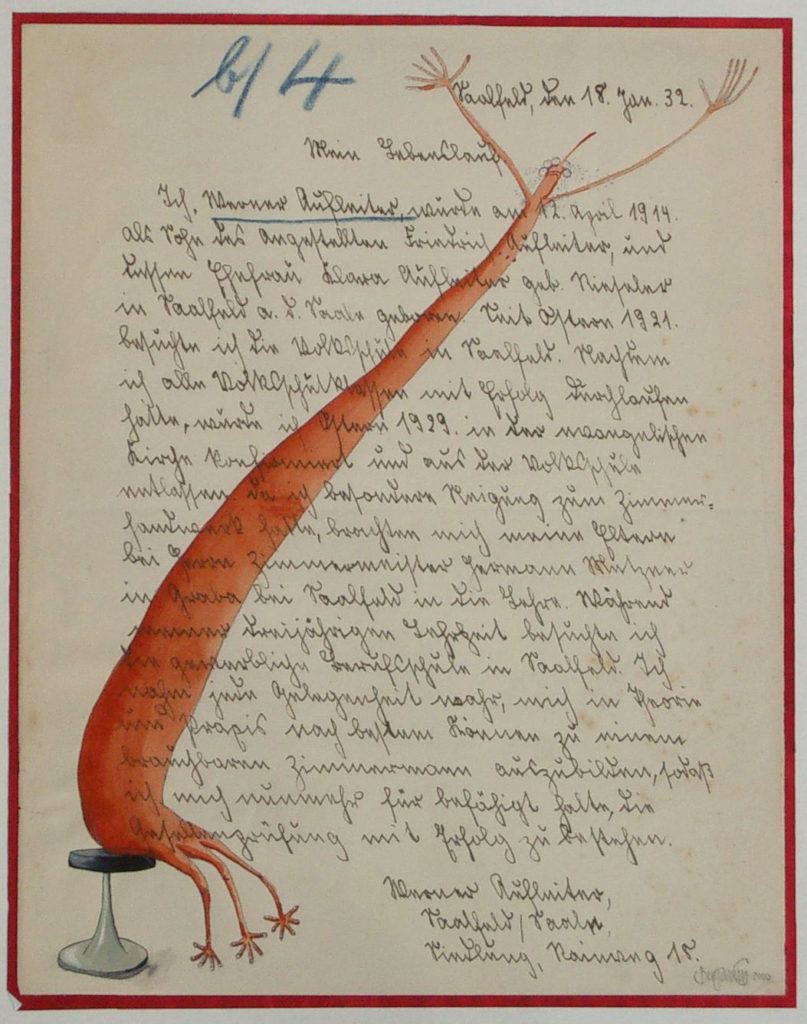 b/4
Saalfeld, den 18. Jan. 32.
Mein Lebenslauf
Ich, Werner Aufleiter, wurde am 12. April 1914.
als Sohn des Angestellten Friedrich Aufleiter, und
dessen Ehefrau Klara Aufleiter geb. Nieseler
in Saalfeld a. d. Saale geboren. Seit Ostern 1921.
besuchte ich die Volksschule in Saalfeld. Nachdem
ich alle Volksschulklassen mit Erfolg durchlaufen
hatte, wurde ich Ostern 1929. in der evangelischen
Kirche konfirmiert und aus der Volksschule
entlassen. Da ich besondere Neigung zum Zimmer=
handwerk hatte, brachten mich meine Eltern
bei Herrn Zimmermeister Hermann
in Graba bei Saalfeld in die Lehre. Während
meiner dreijährigen Lehrzeit besuchte ich
die gewerbliche Berufsschule in Saalfeld. Ich
nahm jede Gelegenheit wahr, mich in Theorie
und Praxis nach bestem Können zu einem
brauchbaren Zimmermann auszubilden, sodaß
ich mich nunmehr für befähigt halte, die
Gesellenprüfung mit Erfolg zu bestehen.
Werner Aufleiter,
Saalfeld/Saale,
Siedlung, Rainweg 15.